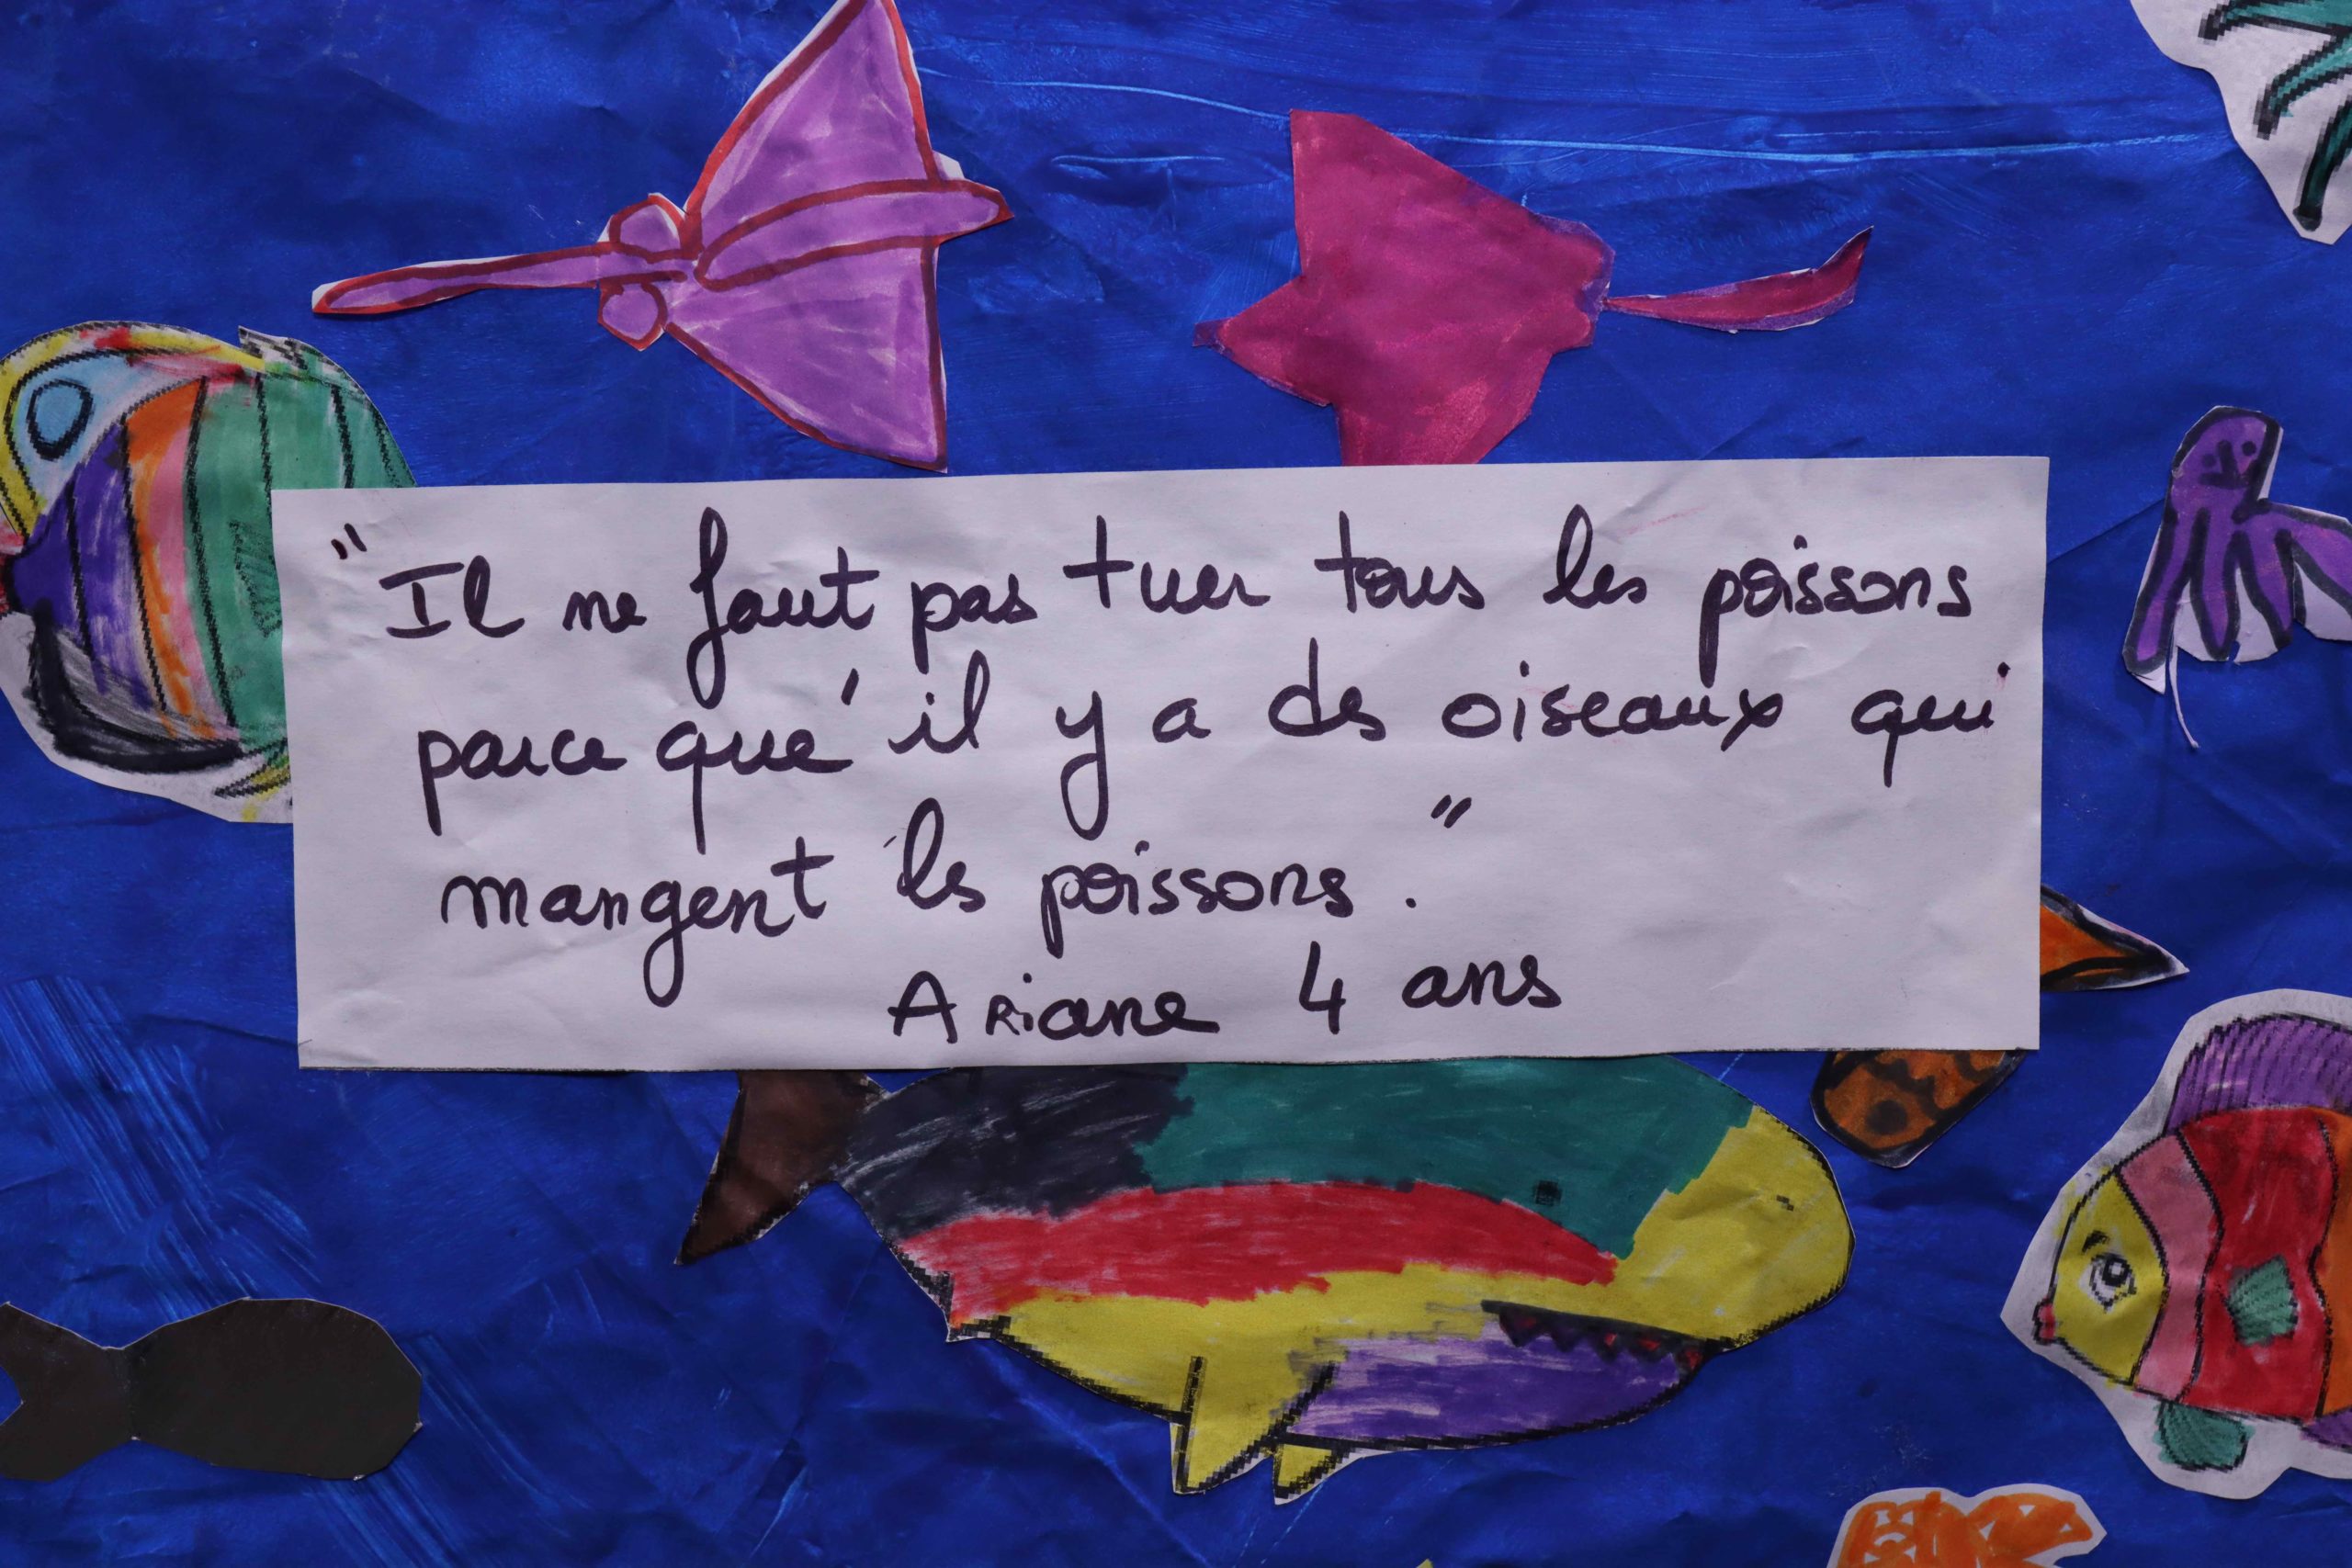 "Il ne faut pas tuer tous les poissons
parce que' il y a des oiseaux qui
mangent les poissons."
Ariane 4 ans